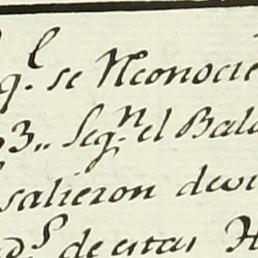 q.^l se Reconocie
3,, Seg.^n el Bala
salieron devi
d.^s de estas H